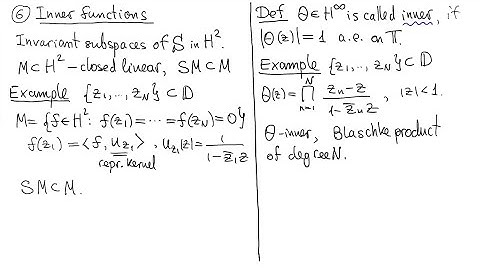 ⑥ Inner functions
Invariant subspaces of S in H².
M⊂H² – closed linear, SM⊂M
Example {z₁,..., z_N}⊂𝔻
M={f∈H²: f(z₁)=⋯=f(z_N)=0}
f(z₁)=⟨f, u_{z₁}⟩, u_{z₁}(z)=1/(1-z̄₁z)
repr. kernel
SM⊂M.
Def Θ∈H^∞ is called inner, if
|Θ(z)|=1 a.e. on 𝕋.
Example {z₁,..., z_N}⊂𝔻
Θ(z)=∏_{n=1}^{N} (z_n-z)/(1-z̄_n z), |z|<1.
Θ-inner, Blaschke product
of degree N.